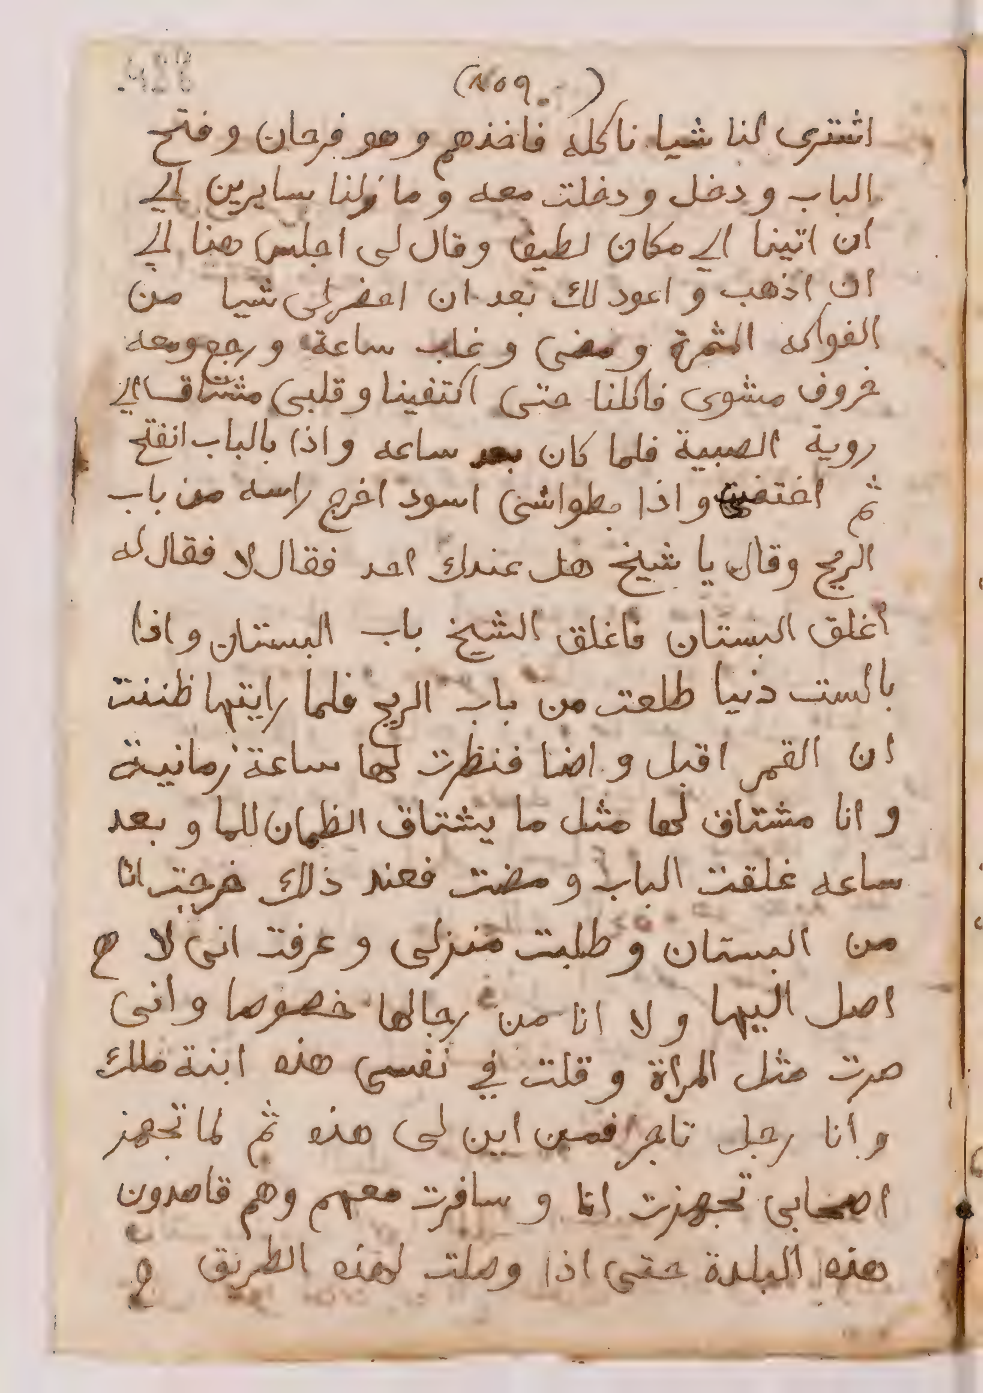 (٨٥٩)
اشترى لنا شيا ناكله فاخذهم وهو فرحان وفتح
الباب ودخل ودخلت معه وما زلنا سايرين الي
ان اتينا الي مكان لطيف وقال لى اجلس هنا الي
ان اذهب واعود لك بعد ان احضر لى شيا من
الفواكه المثمرة ومضى وغاب ساعة ورجع ومعه
خروف مشوى فاكلنا حتى اكتفينا وقلبى مشتاق الي
روية الصبية فلما كان بعد ساعه واذا بالباب انفتح
ثم اختفيت واذا بطواشى اسود اخرج راسه من باب
الريح وقال يا شيخ هل عندك احد فقال لا فقال له
أغلق البستان فاغلق الشيخ باب البستان واذا
بالست دنيا طلعت من باب الريح فلما رايتها ظننت
ان القمر اقبل واضا فنظرت لها ساعة زمانية
وانا مشتاق لها مثل ما يشتاق الظمان للما وبعد
ساعه غلقت الباب ومضت فعند ذلك خرجت انا
من البستان وطلبت منزلى وعرفت انى لا
اصل اليها ولا انا من رجالها خصوصا وانى
صرت مثل المراة وقلت في نفسى هذه ابنة ملك
وانا رجل تاجر فمن اين لى هذه ثم لما تجهز
اصحابى تجهزت انا وسافرت معهم وهم قاصدون
هذه البلدة حتى اذا وصلت لهذه الطريق